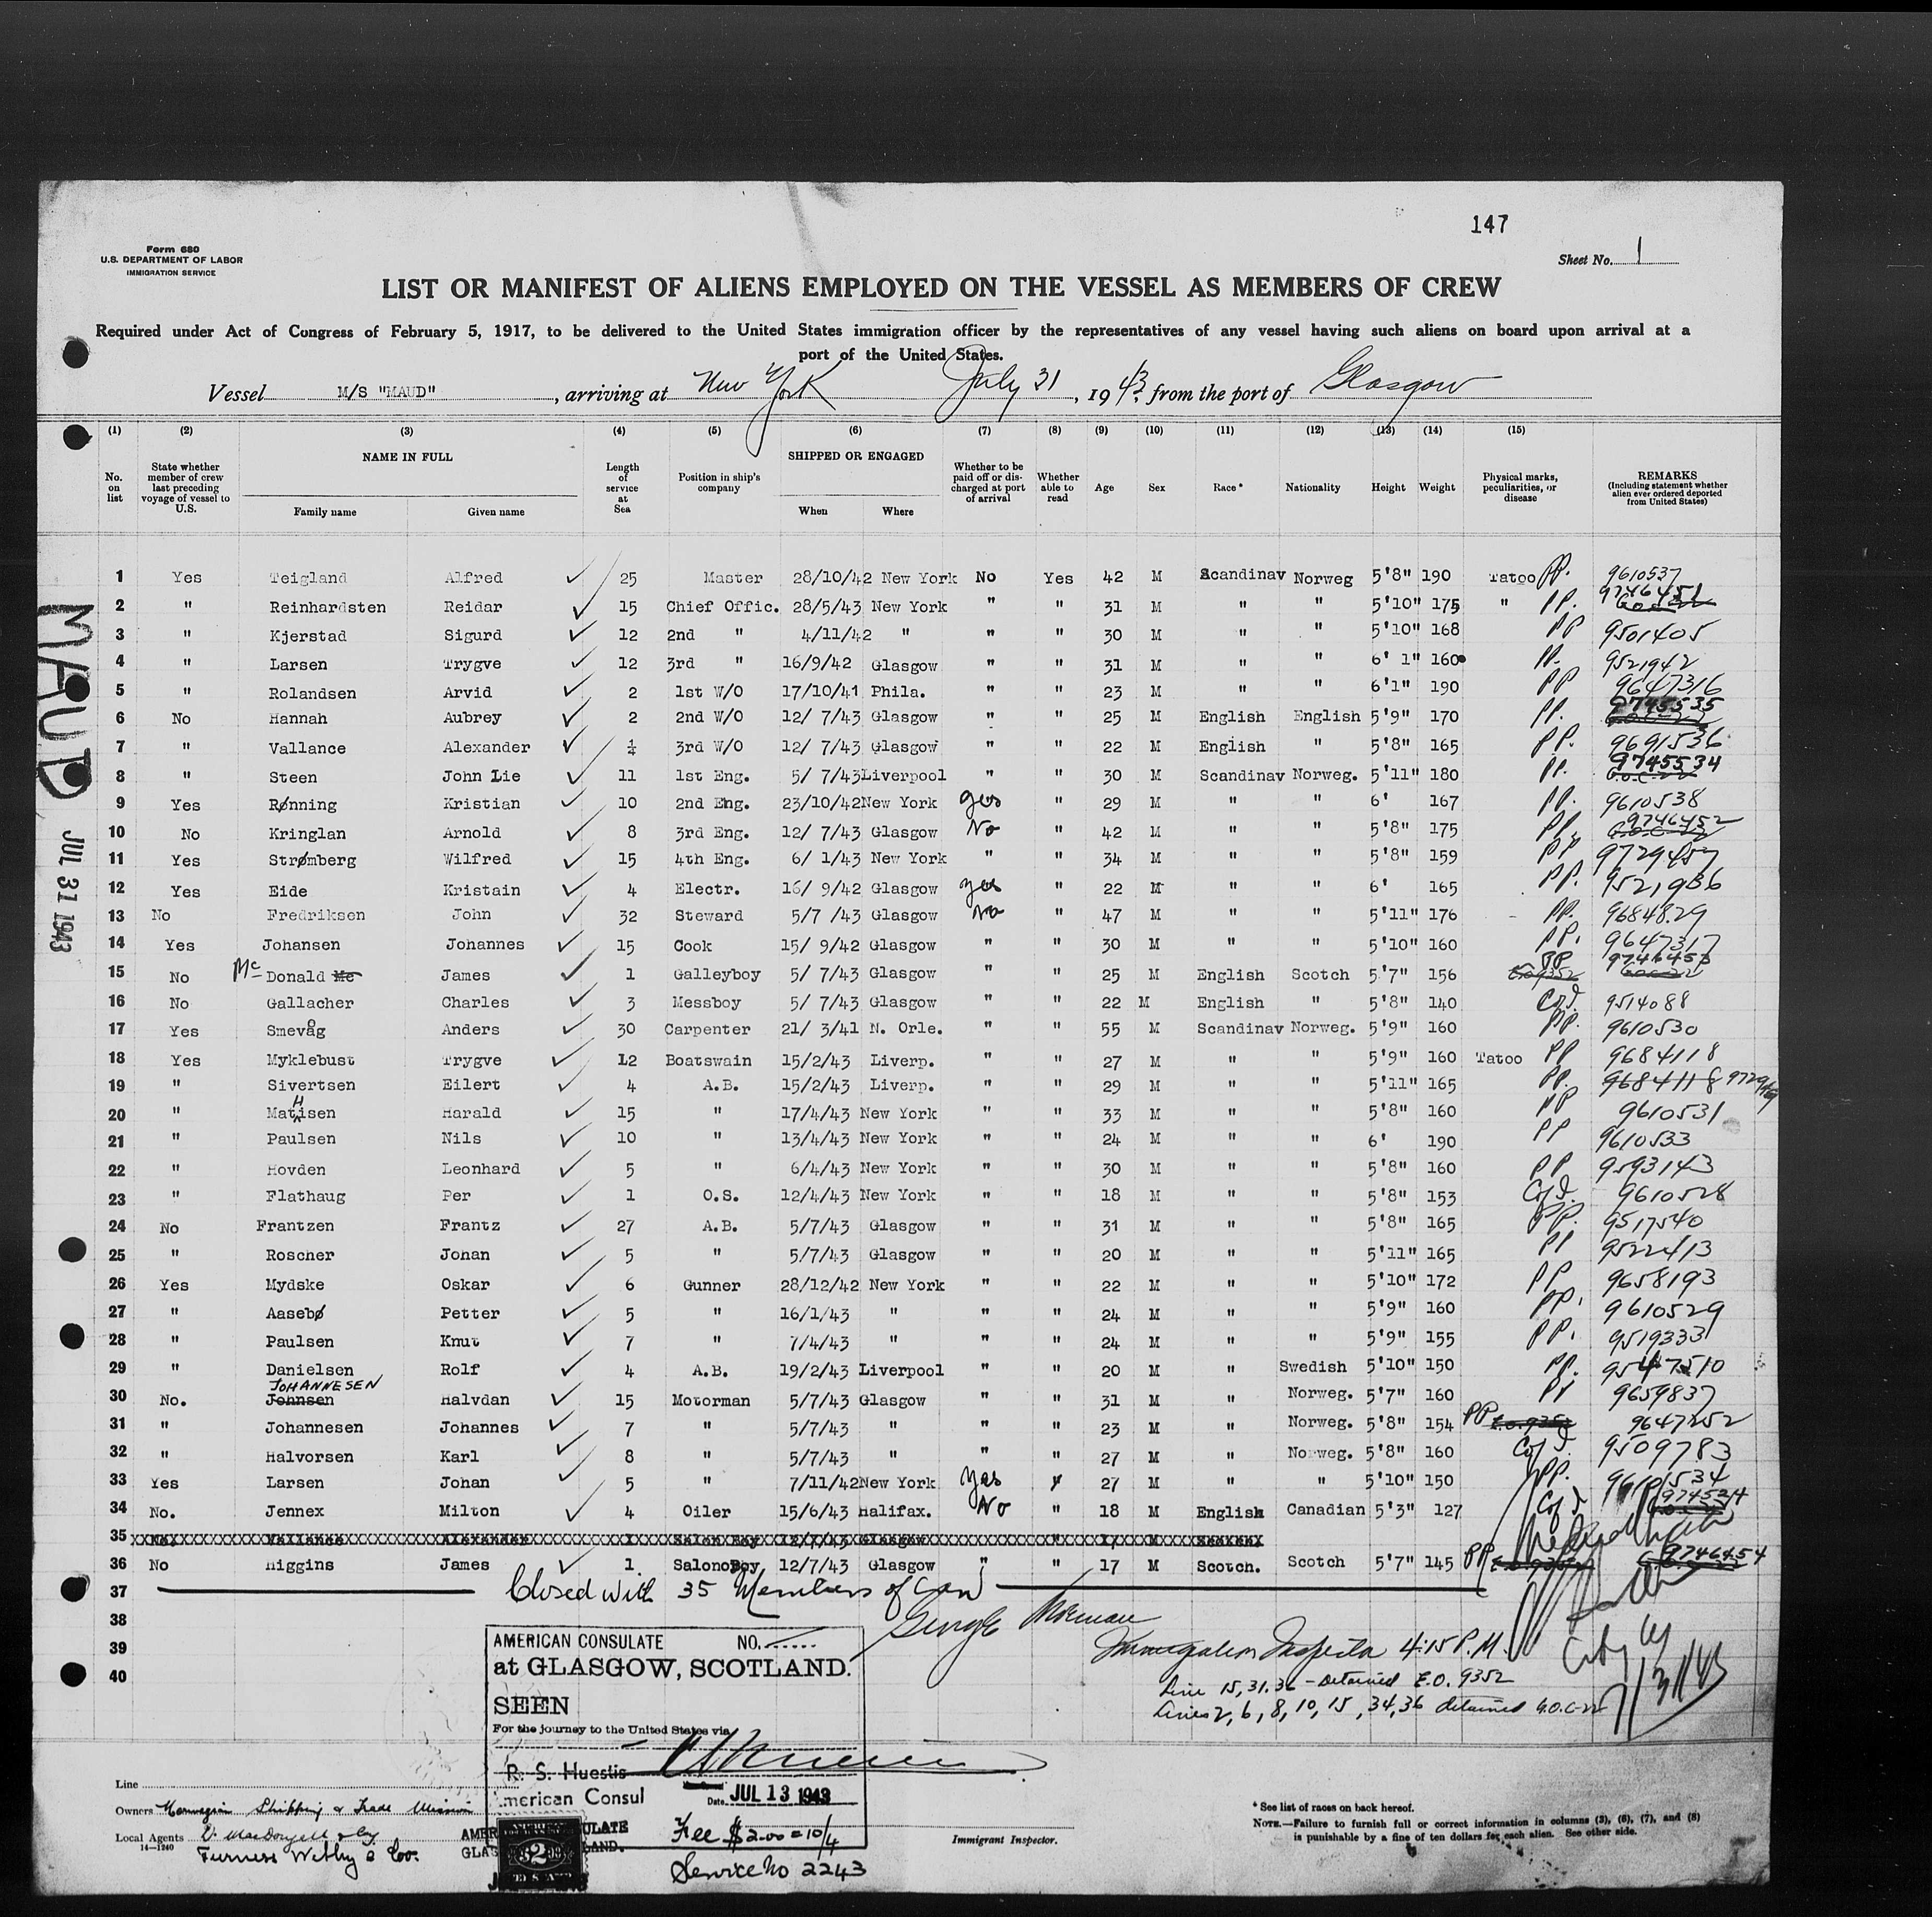 147
Form 680
U.S. DEPARTMENT OF LABOR
IMMIGRATION SERVICE
Sheet No. 1
LIST OR MANIFEST OF ALIENS EMPLOYED ON THE VESSEL AS MEMBERS OF CREW
Required under Act of Congress of February 5, 1917, to be delivered to the United States immigration officer by the representatives of any vessel having such aliens on board upon arrival at a
port of the United States.
Vessel M/S "MAUD", arriving at New York July 31, 1943, from the port of Glasgow
(1) (2) (3) (4) (5) (6) (7) (8) (9) (10) (11) (12) (13) (14) (15)
No. on list
State whether member of crew last preceding voyage of vessel to U.S.
NAME IN FULL
Family name Given name
Length of service at Sea
Position in ship's company
SHIPPED OR ENGAGED
When Where
Whether to be paid off or discharged at port of arrival
Whether able to read
Age
Sex
Race*
Nationality
Height
Weight
Physical marks, peculiarities, or disease
REMARKS
(Including statement whether alien ever ordered deported from United States)
1 Yes Teigland Alfred 25 Master 28/10/42 New York No Yes 42 M Scandinav Norweg 5'8" 190 Tatoo PP. 9610537
2 " Reinhardsten Reidar 15 Chief Offic. 28/5/43 New York " " 31 M " " 5'10" 175 " PP. 9746451
3 " Kjerstad Sigurd 12 2nd " 4/11/42 " " " 30 M " " 5'10" 168 PP 9501405
4 " Larsen Trygve 12 3rd " 16/9/42 Glasgow " " 31 M " " 6' 1" 160 PP. 9521942
5 " Rolandsen Arvid 2 1st W/O 17/10/41 Phila. " " 23 M " " 6'1" 190 PP 9647316
6 No Hannah Aubrey 2 2nd W/O 12/ 7/43 Glasgow " " 25 M English English 5'9" 170 PP. 9745535
7 " Vallance Alexander 1/4 3rd W/O 12/ 7/43 Glasgow " " 22 M English " 5'8" 165 PP. 9691536
8 " Steen John Lie 11 1st Eng. 5/ 7/43 Liverpool " " 30 M Scandinav Norweg. 5'11" 180 PP. 9745534
9 Yes Rønning Kristian 10 2nd Eng. 23/10/42 New York yes " 29 M " " 6' 167 PP. 9610538
10 No Kringlan Arnold 8 3rd Eng. 12/ 7/43 Glasgow No " 42 M " " 5'8" 175 PP. 9746452
11 Yes Strømberg Wilfred 15 4th Eng. 6/ 1/43 New York " " 34 M " " 5'8" 159 PP 9729457
12 Yes Eide Kristain 4 Electr. 16/ 9/42 Glasgow yes " 22 M " " 6' 165 PP. 9521936
13 No Fredriksen John 32 Steward 5/7 /43 Glasgow No " 47 M " " 5'11" 176 - PP. 9684829
14 Yes Johansen Johannes 15 Cook 15/ 9/42 Glasgow " " 30 M " " 5'10" 160 PP. 9647317
15 No Mc Donald Mc James 1 Galleyboy 5/ 7/43 Glasgow " " 25 M English Scotch 5'7" 156 E.O.9352 PP 9746453
16 No Gallacher Charles 3 Messboy 5/ 7/43 Glasgow " " 22 M English " 5'8" 140 C of I. 9514088
17 Yes Smevåg Anders 30 Carpenter 21/ 3/41 N. Orle. " " 55 M Scandinav Norweg. 5'9" 160 PP. 9610530
18 Yes Myklebust Trygve 12 Boatswain 15/2/43 Liverp. " " 27 M " " 5'9" 160 Tatoo PP 9684118
19 " Sivertsen Eilert 4 A.B. 15/2/43 Liverp. " " 29 M " " 5'11" 165 PP. 9684118
20 " MatHisen Harald 15 " 17/4/43 New York " " 33 M " " 5'8" 160 PP 9610531
21 " Paulsen Nils 10 " 13/4/43 New York " " 24 M " " 6' 190 PP 9610533
22 " Hovden Leonhard 5 " 6/4/43 New York " " 30 M " " 5'8" 160 PP. 9593143
23 " Flathaug Per 1 O.S. 12/4/43 New York " " 18 M " " 5'8" 153 C of I. 9610528
24 No Frantzen Frantz 27 A.B. 5/7/43 Glasgow " " 31 M " " 5'8" 165 PP. 9517540
25 " Roscher Johan 5 " 5/7/43 Glasgow " " 20 M " " 5'11" 165 PP 9522413
26 Yes Mydske Oskar 6 Gunner 28/12/42 New York " " 22 M " " 5'10" 172 PP 9658193
27 " Aasebø Petter 5 " 16/1/43 " " " 24 M " " 5'9" 160 PP. 9610529
28 " Paulsen Knut 7 " 7/4/43 " " " 24 M " " 5'9" 155 PP. 9519333
29 " Danielsen Rolf 4 A.B. 19/2/43 Liverpool " " 20 M " Swedish 5'10" 150 PP. 9547510
30 No. Johnsen JOHANNESEN Halvdan 15 Motorman 5/7/43 Glasgow " " 31 M " Norweg. 5'7" 160 PP 9659837
31 " Johannesen Johannes 7 " 5/7/43 " " " 23 M " Norweg. 5'8" 154 PP E.O.9352 9647252
32 " Halvorsen Karl 8 " 5/7/43 " " " 27 M " Norweg. 5'8" 160 C of I. 9509783
33 Yes Larsen Johan 5 " 7/11/42 New York Yes " 27 M " " 5'10" 150 PP. 9610534
34 No. Jennex Milton 4 Oiler 15/6/43 Halifax. No " 18 M English Canadian 5'3" 127 C of I
35 No. Vallance Alexander 1 Salon Boy 12/7/43 Glasgow " 17 M
36 No Higgins James 1 SalonoBoy 12/7/43 Glasgow " " 17 M Scotch. Scotch 5'7" 145 PP E.O.9352 9746454
37 Closed with 35 Members of Crew
38
39
40
George
Immigration Inspector 4:15 P.M.
Line 15, 31, 36 - Detained E.O. 9352
Lines 2, 6, 8, 10, 15, 34, 36 detained G.O.C-22
7/31/43
MAUD
JUL 31 1943
AMERICAN CONSULATE NO.
at GLASGOW, SCOTLAND.
SEEN
For the journey to the United States via
R. S. Huestis
American Consul
Date JUL 13 1943
Fee $2.00 = 10/4
Service No 2243
Line
Owners Norwegian Shipping & Trade Mission
Local Agents
14-1240
Furness Withy & Co.
Immigrant Inspector.
* See list of races on back hereof.
NOTE.—Failure to furnish full or correct information in columns (3), (6), (7), and (8)
is punishable by a fine of ten dollars for each alien. See other side.